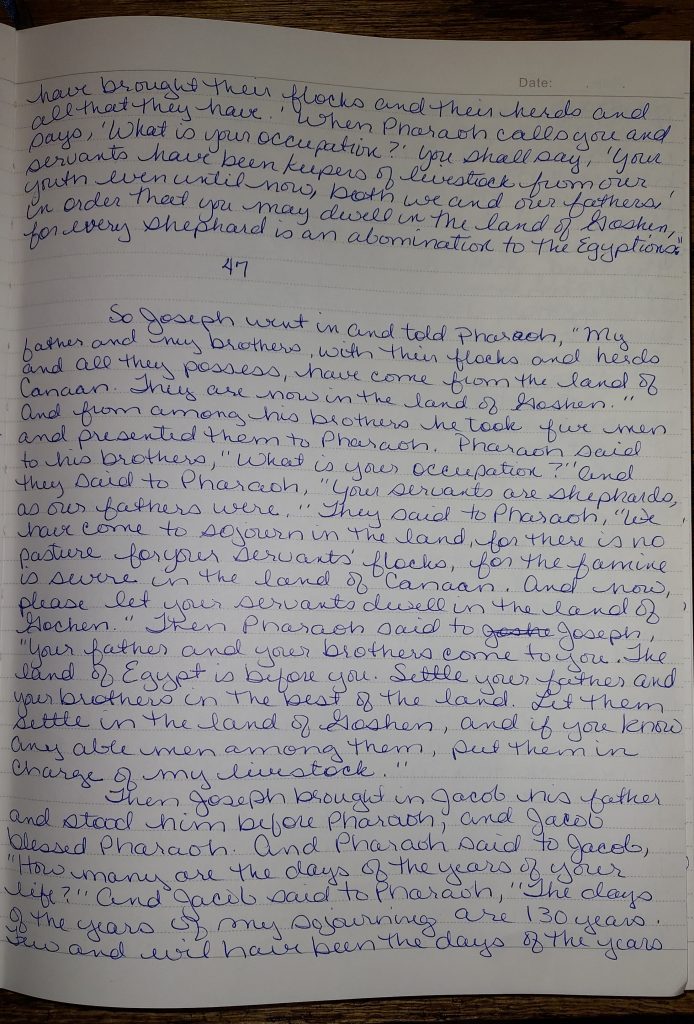 Date:
have brought their flocks and their herds and
all that they have.' When Pharaoh calls you and
says, 'What is your occupation?' you shall say, 'Your
servants have been keepers of livestock from our
youth even until now, both we and our fathers,'
in order that you may dwell in the land of Goshen,
for every shephard is an abomination to the Egyptions."
47
So Joseph went in and told Pharaoh, "My
father and my brothers, with their flocks and herds
and all they possess, have come from the land of
Canaan. They are now in the land of Goshen."
And from among his brothers he took five men
and presented them to Pharaoh. Pharaoh said
to his brothers, "What is your occupation?" And
they said to Pharaoh, "Your servants are shephards,
as our fathers were." They said to Pharaoh, "We
have come to sojourn in the land, for there is no
pasture for your servants' flocks, for the famine
is severe in the land of Canaan. And now,
please let your servants dwell in the land of
Gochen." Then Pharaoh said to goshe Joseph,
"Your father and your brothers come to you. The
land of Egypt is before you. Settle your father and
your brothers in the best of the land. Let them
settle in the land of Goshen, and if you know
any able men among them, put them in
charge of my livestock."
Then Joseph brought in Jacob his father
and stood him before Pharaoh, and Jacob
blessed Pharaoh. And Pharaoh said to Jacob,
"How many are the days of the years of your
life?" And Jacob said to Pharaoh, "The days
of the years of my sojourning are 130 years.
Few and evil have been the days of the years